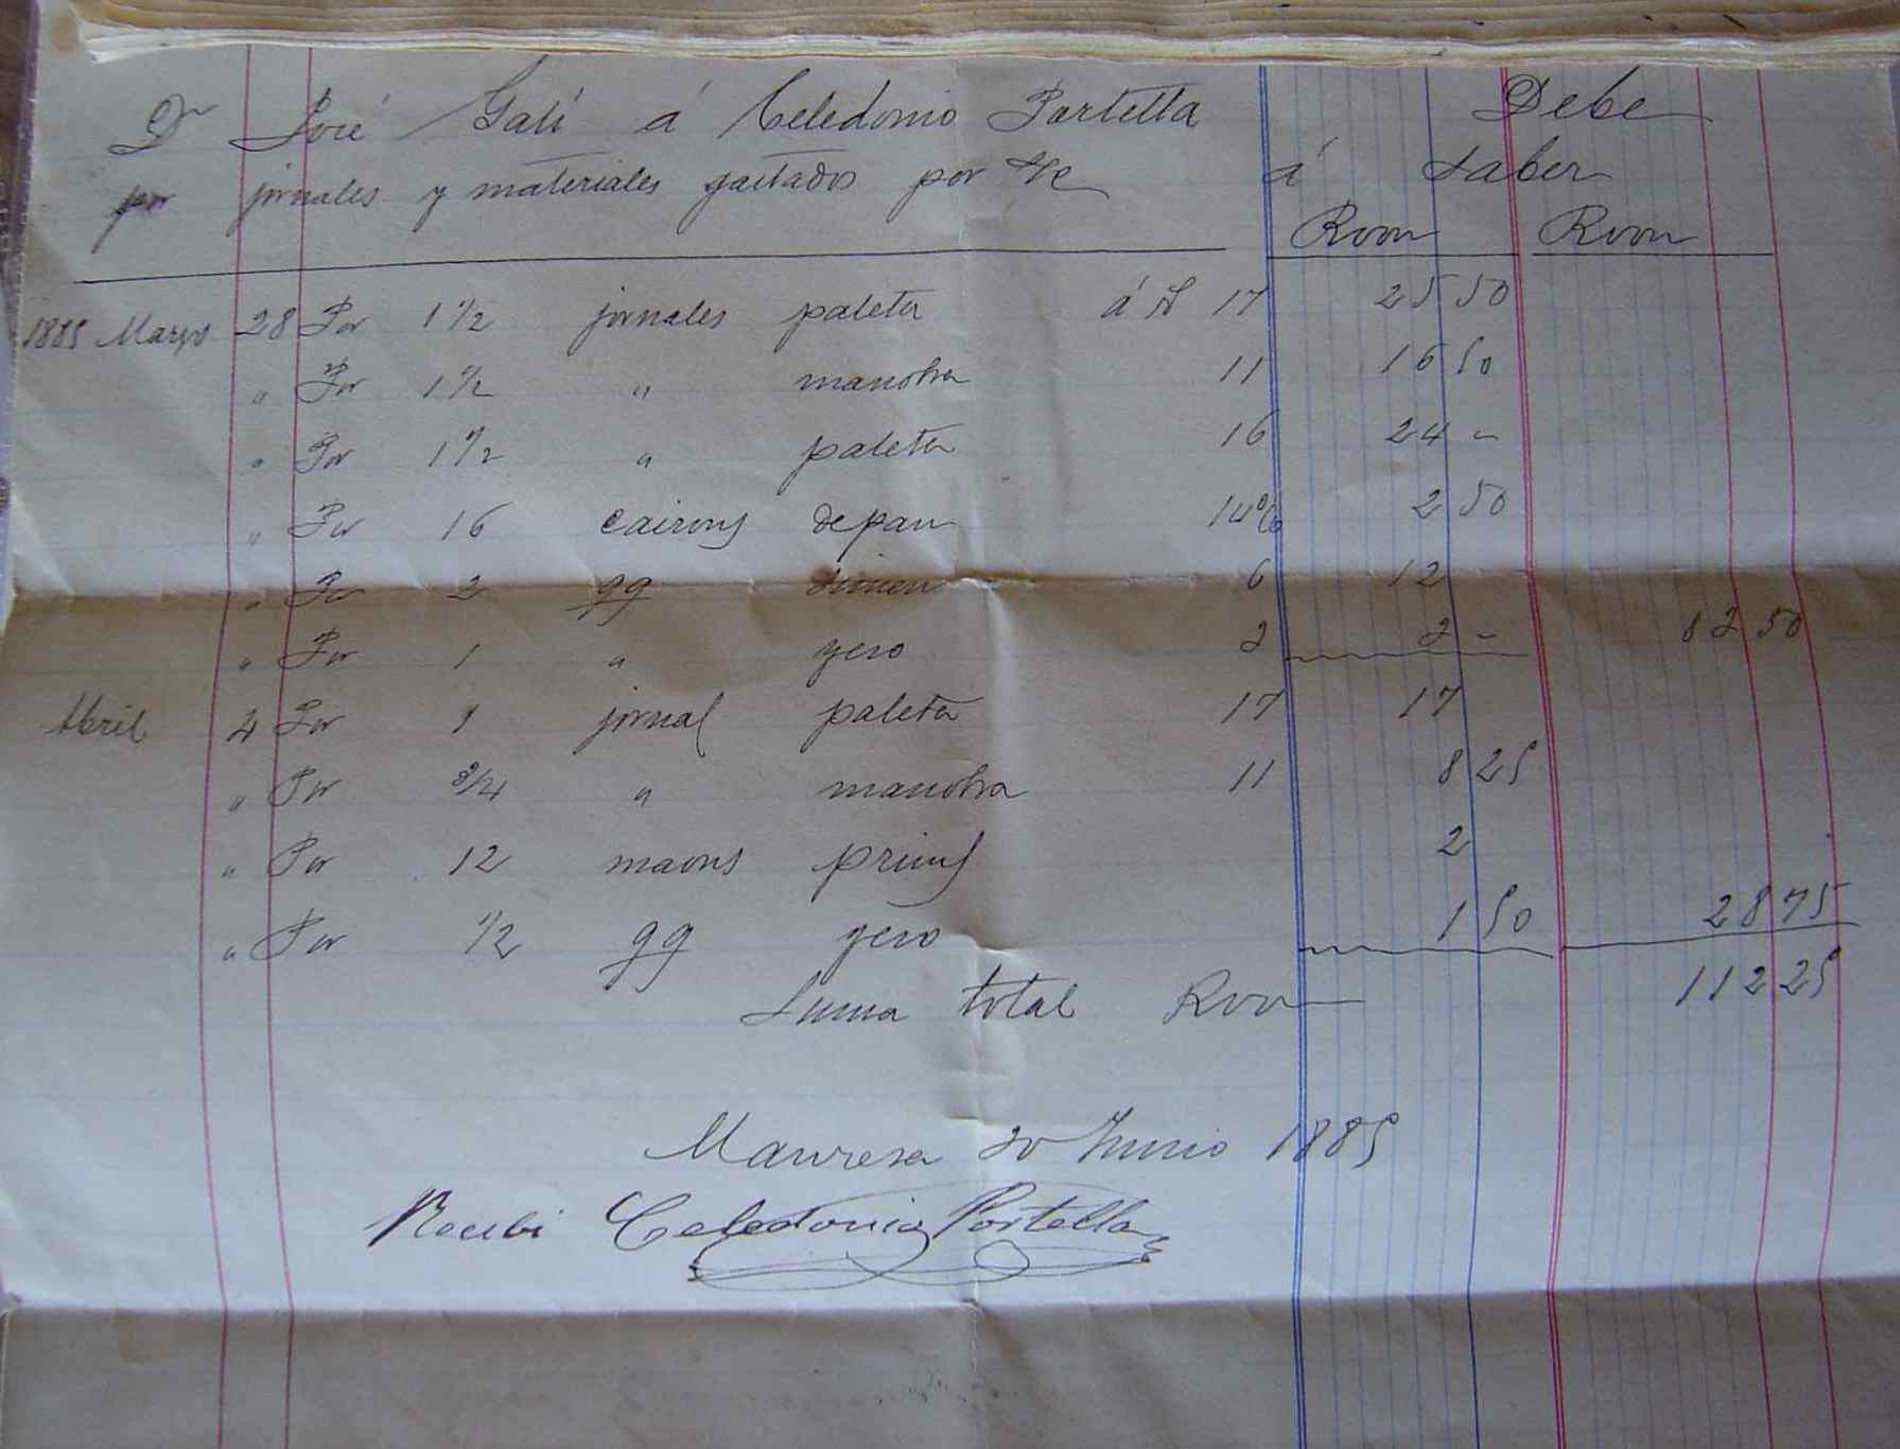 Dn José Galí á Celedonio Portella Debe
por jornales y materiales gastados por á saber
Rvon Rvon
1885 Marzo 28 Por 1 1/2 jornales paleta á 17 25 50
" Por 1 1/2 " manobra 11 16 50
" Por 1 1/2 " paleta 16 24 -
" Por 16 cairons de pam 14% 2 50
" Por 2 qq 6 12
" Por 1 " yeso 2 2 - 82 50
Abril 4 Por 1 jornal paleta 17 17
" Por 3/4 " manobra 11 8 25
" Por 12 maons prims 2
" Por 1/2 qq yeso 1 50 28 75
Suma total Rvon 112 25
Manresa 20 Junio 1885
Recibi Celedonio Portella